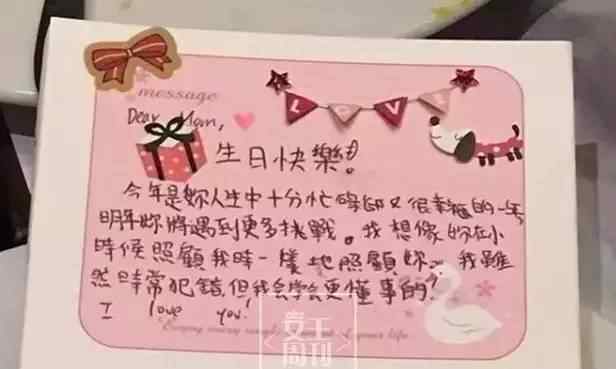 message
Dear Mom,
LOVE
生日快樂!
今年是妳人生中十分忙碌卻又很幸福的一年
明年妳將遇到更多挑戰。我想像妳在小
時候照顧我時一樣地照顧妳。我雖
然時常犯錯,但我会学会更懂事的!
I love you!
Enjoy every of your life.
女王
周刊